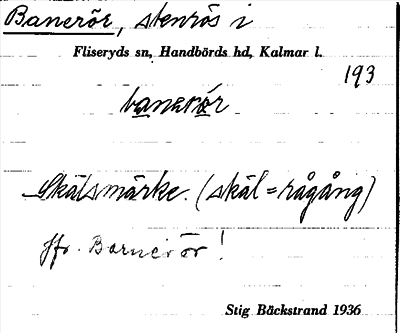 Banerör, stenrös i
Fliseryds sn, Handbörds hd, Kalmar l.
193
banerör
Skälsmärke. (skäl = rågång)
Jfr. Barnerör!
Stig Bäckstrand 1936